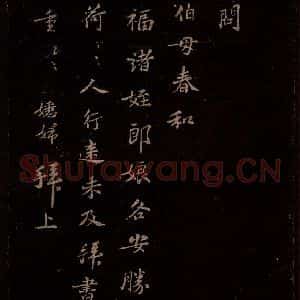 問
伯母春和
福諸姪郎娘各安勝
荷〻人行速未及拜書
重〻婦拜上
Shufawang.CN